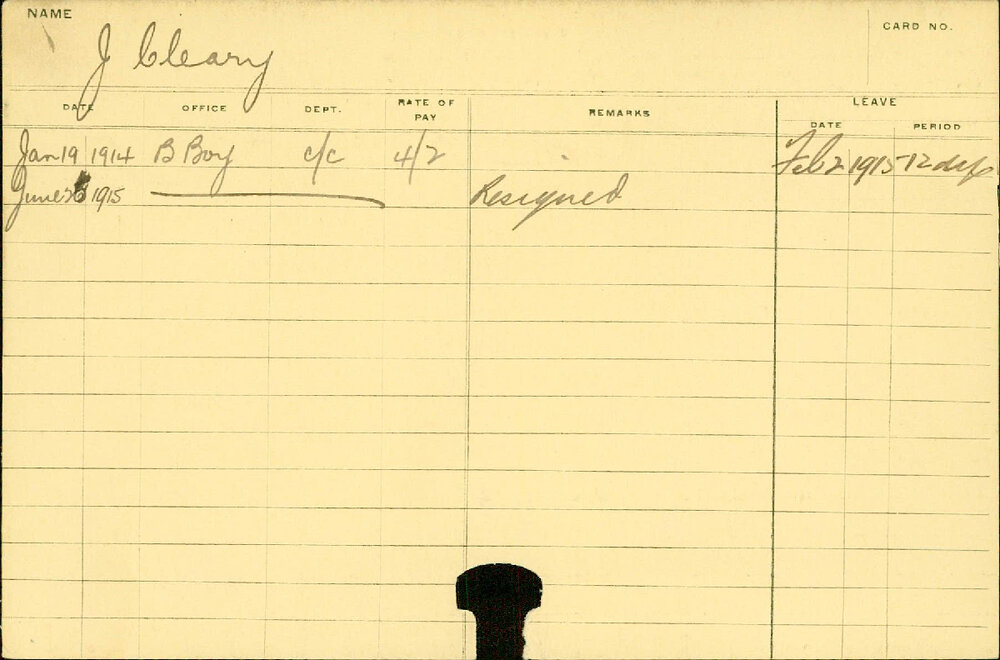 NAME
J Cleary
CARD NO.
DATE OFFICE DEPT. RATE OF PAY REMARKS LEAVE
DATE PERIOD
Jan 19 1914 B Boy c/c 4/2 Feb 2 1915 12 days
June 1915 Resigned